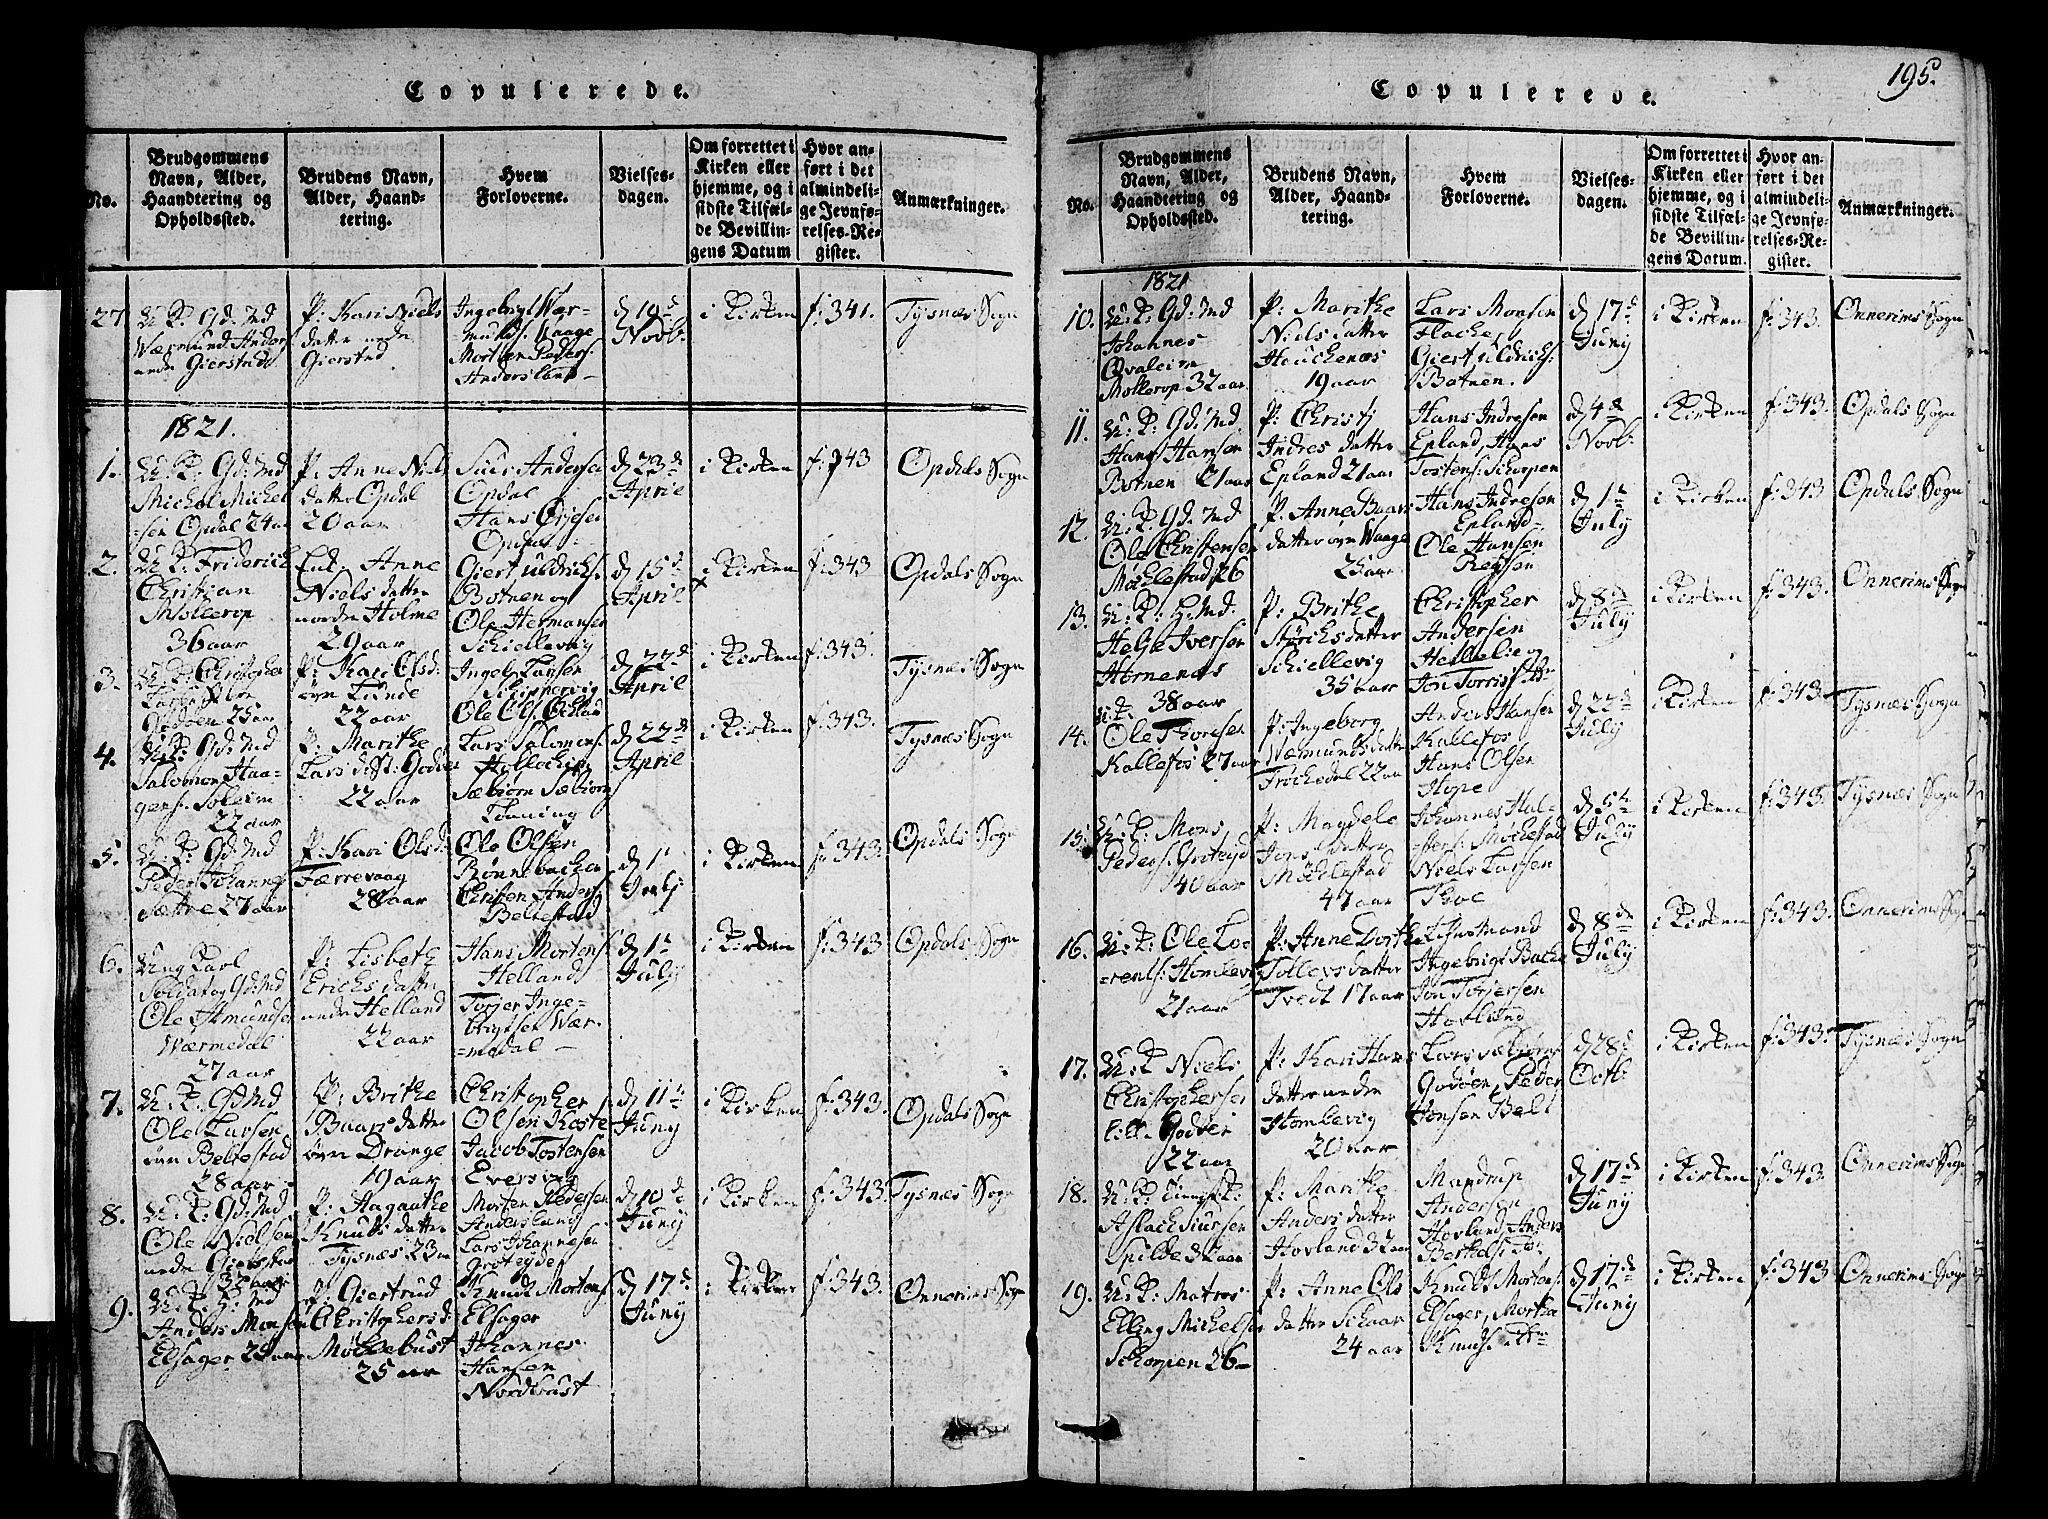 Copulerede.
No.
Brudgommens
Navn, Alder,
Haandtering og
Opholdssted.
Brudens Navn,
Alder, Haand-
tering.
Hvem
Forloverne.
Vielses-
dagen.
Om forrettet i
Kirken eller
hjemme, og i
sidste Tilfæl-
de Bevillin-
gens Datum
Hvor an-
ført i det
almindeli-
ge Jevnfø-
relses-Re-
gister.
Anmærkninger.
27
U. K. Gd: Md
Værmund Anders
nede Gierstad
P: Kari Niels
datter nede
Gierstad
Ingebrigt Vær-
munds. Waage
Morten Peders.
Andersland
d 19de
Novb:
i Kirken
f: 341.
Tysnæs Sogn
1821.
1.
U. K: Gd: Md
Michel Michel
sen Opdal 24 aa
P: Anne Niels
datter Opdal
20 aar
Siur Andersen
Opdal
Hans
Opdal
d 23de
April
i Kirken
f: 343
Opdals Sogn
2.
U. K: Friderich
Christian
Møllerop
36 aar
Enk: Anne
Niels datter
nordre Holme
29 aar
Giert Uldrichs.
Botnen og
Ole Hermansen
Schiellevig
d 15de
April
i Kirken
f: 343
Opdals Sogn
3.
U. K: Christopher
Lars
Godøen 25 aar
P: Kari Olsd:
øvre Lunde
22 aar
Ingeb: Larsen
Schippervig
Ole Ols.
d 22de
April
i Kirken
f: 343.
Tysnæs Sogn
4.
U. K: Gd: Md
Salomon Haa-
gens. Soleim
22 aar
P: Marithe
Lars d. St: Godøen
22 aar
Lars Salomons.
Sæbiørn Sæbiørns
Lønning
d 22de
April
i Kirken
f: 343.
Tysnæs Sogn
5.
U. K: Gd: Md
Peder Johannes
Sættre 27 aar
P: Kari Olsd.
Færrevaag
28 aar
Ole Olsen
Rønnebachen
Christen Anders
Beltestad
d 1
July
i Kirken
f: 343.
Opdals Sogn
6.
Ung Karl
Soldat og Gd: Md
Ole Amundsen
Wærmedal
27 aar
P: Lisbeth
Erichs datter
nedre Helland
22 aar
Hans Mortens.
Helland
Torjer Inge-
brigtsen Wær-
=medal
d 1
July
i Kirken
f: 343
Opdals Sogn
7.
U. K: Gd: Md
Ole Larsen
øvre Beltestad
28 aar
P: Brithe
Baars datter
øvre Drange
19 aar
Christopher
Olsen Koste
Jacob Tostensen
Eversvig
d 11te
Juny
i Kirken
f: 343.
Opdals Sogn
8.
U. K: Gd: Md
Ole Nielsen
nede Gierstad
32 aar
P: Aagaathe
Knuds datter
Tysnæs 23 aar
Morten Pedersen
Andersland
Lars Johannesen
Groteydet
d 10de
Juny
i Kirken
f: 343.
Tysnæs Sogn
9.
U. K. H: Md
Anders Monsen
Elsager 25 aar
P: Giertrud
Christophersd:
Møchebust
25 aar
Knudt Mortens.
Elsager
Johannes
Hansen
Nordbust
d 17de
Juny
i Kirken
f: 343.
Onnerims Sogn
195.
Copulerede.
No.
Brudgommens
Navn, Alder,
Haandtering og
Opholdssted.
Brudens Navn,
Alder, Haand-
tering.
Hvem
Forloverne.
Vielses-
dagen.
Om forrettet i
Kirken eller
hjemme, og i
sidste Tilfæl-
de Bevillin-
gens Datum.
Hvor an-
ført i det
almindeli-
ge Jevnfø-
relses-Re-
gister.
Anmærkninger.
1821
10.
U. K: Gd: Md
Johannes
Møllerop 32 aar
P: Marithe
Niels datter
Houchenæs
19 aar
Lars Monsen
Flache,
Giert Uldrichs.
Botnen.
d 17de
Juny
i Kirken
f: 343.
Onnerims Sogn
11.
U. K: Gd: Md.
Hans Hansen
Botnen 21 aar
P: Christi
Indres datter
Epland 21 aar
Hans Indresen
Epland, Hans
Tostens. Schorpen
d 4de
Novb:
i Kirken
f: 343.
Opdals Sogn
12.
U. K: Gd: Md
Ole Christensen
Møchlestad 26
P: Anne Baars
datter øvre Waage
25 aar
Hans Indresen
Epland
Ole Hansen
Reysen
d 1te
July
i Kirken
f: 343
Opdals Sogn
13.
U. K: H: Md.
Helge Iversen
Hornenæs
38 aar
P: Brithe
Størchs datter
Schiellevig
35 aar
Christopher
Andersen
Hellelie og
Jon Torris
d 8de
July
i Kirken
f: 343.
Onnerims Sogn
14.
U. K.
Ole Thoresen
Kallefos 27 aar
P: Ingeborg
Wærmunds datter
Frøchedal 22 aa
Anders Hansen
Kallefos
Hans Olsen
Hope
d 22de
July
i Kirken
f: 343.
Tysnæs Sogn
15.
U. K: Mons
Peders. Groteyd
40 aar
P: Magdele
Jons datter
Møchlestad
47 aar
Johannes Hal-
Møchlestad
Niels Larsen
Thoe
d 5te
July
i Kirken
f: 343.
Tysnæs Sogn
16.
U. K: Ole Lo-
=rents. Homlevig
21 aar
P: Anne Dorthe
Tollevs datter
Tvedt 17 aar
Lensmand
Ingebrigt Bache
Jon Torjersen
Hovland
d 8de
July
i Kirken
f: 343.
Onnerims Sogn
17.
U. K Niels
Christophersen
lille Godøen
22 aar
P: Kari Hans
datter nedre
Homlevig
20 aar
Lars Sæbiørns
Godøen, Peder
Hansen Belt
d 28de
Octb:
i Kirken
f: 343.
Tysnæs Sogn
18.
Aslach Siursen
Spilde 32 aar
P: Marithe
Anders datter
Hovland 32 aar
Mandrup
Andersen
Hovland Anders
Berthels.
d 17de
Juny
i Kirken
f: 343.
Onnerims Sogn
19.
U. K: Matros
Elling Michelsen
Schorpen 36
P: Anne Ols
datter Schaar
24 aar
Knudt Mortens.
Elsager, Morten
Knuds.
d 17de
Juny
i Kirken
f: 343
Onnerims Sogn